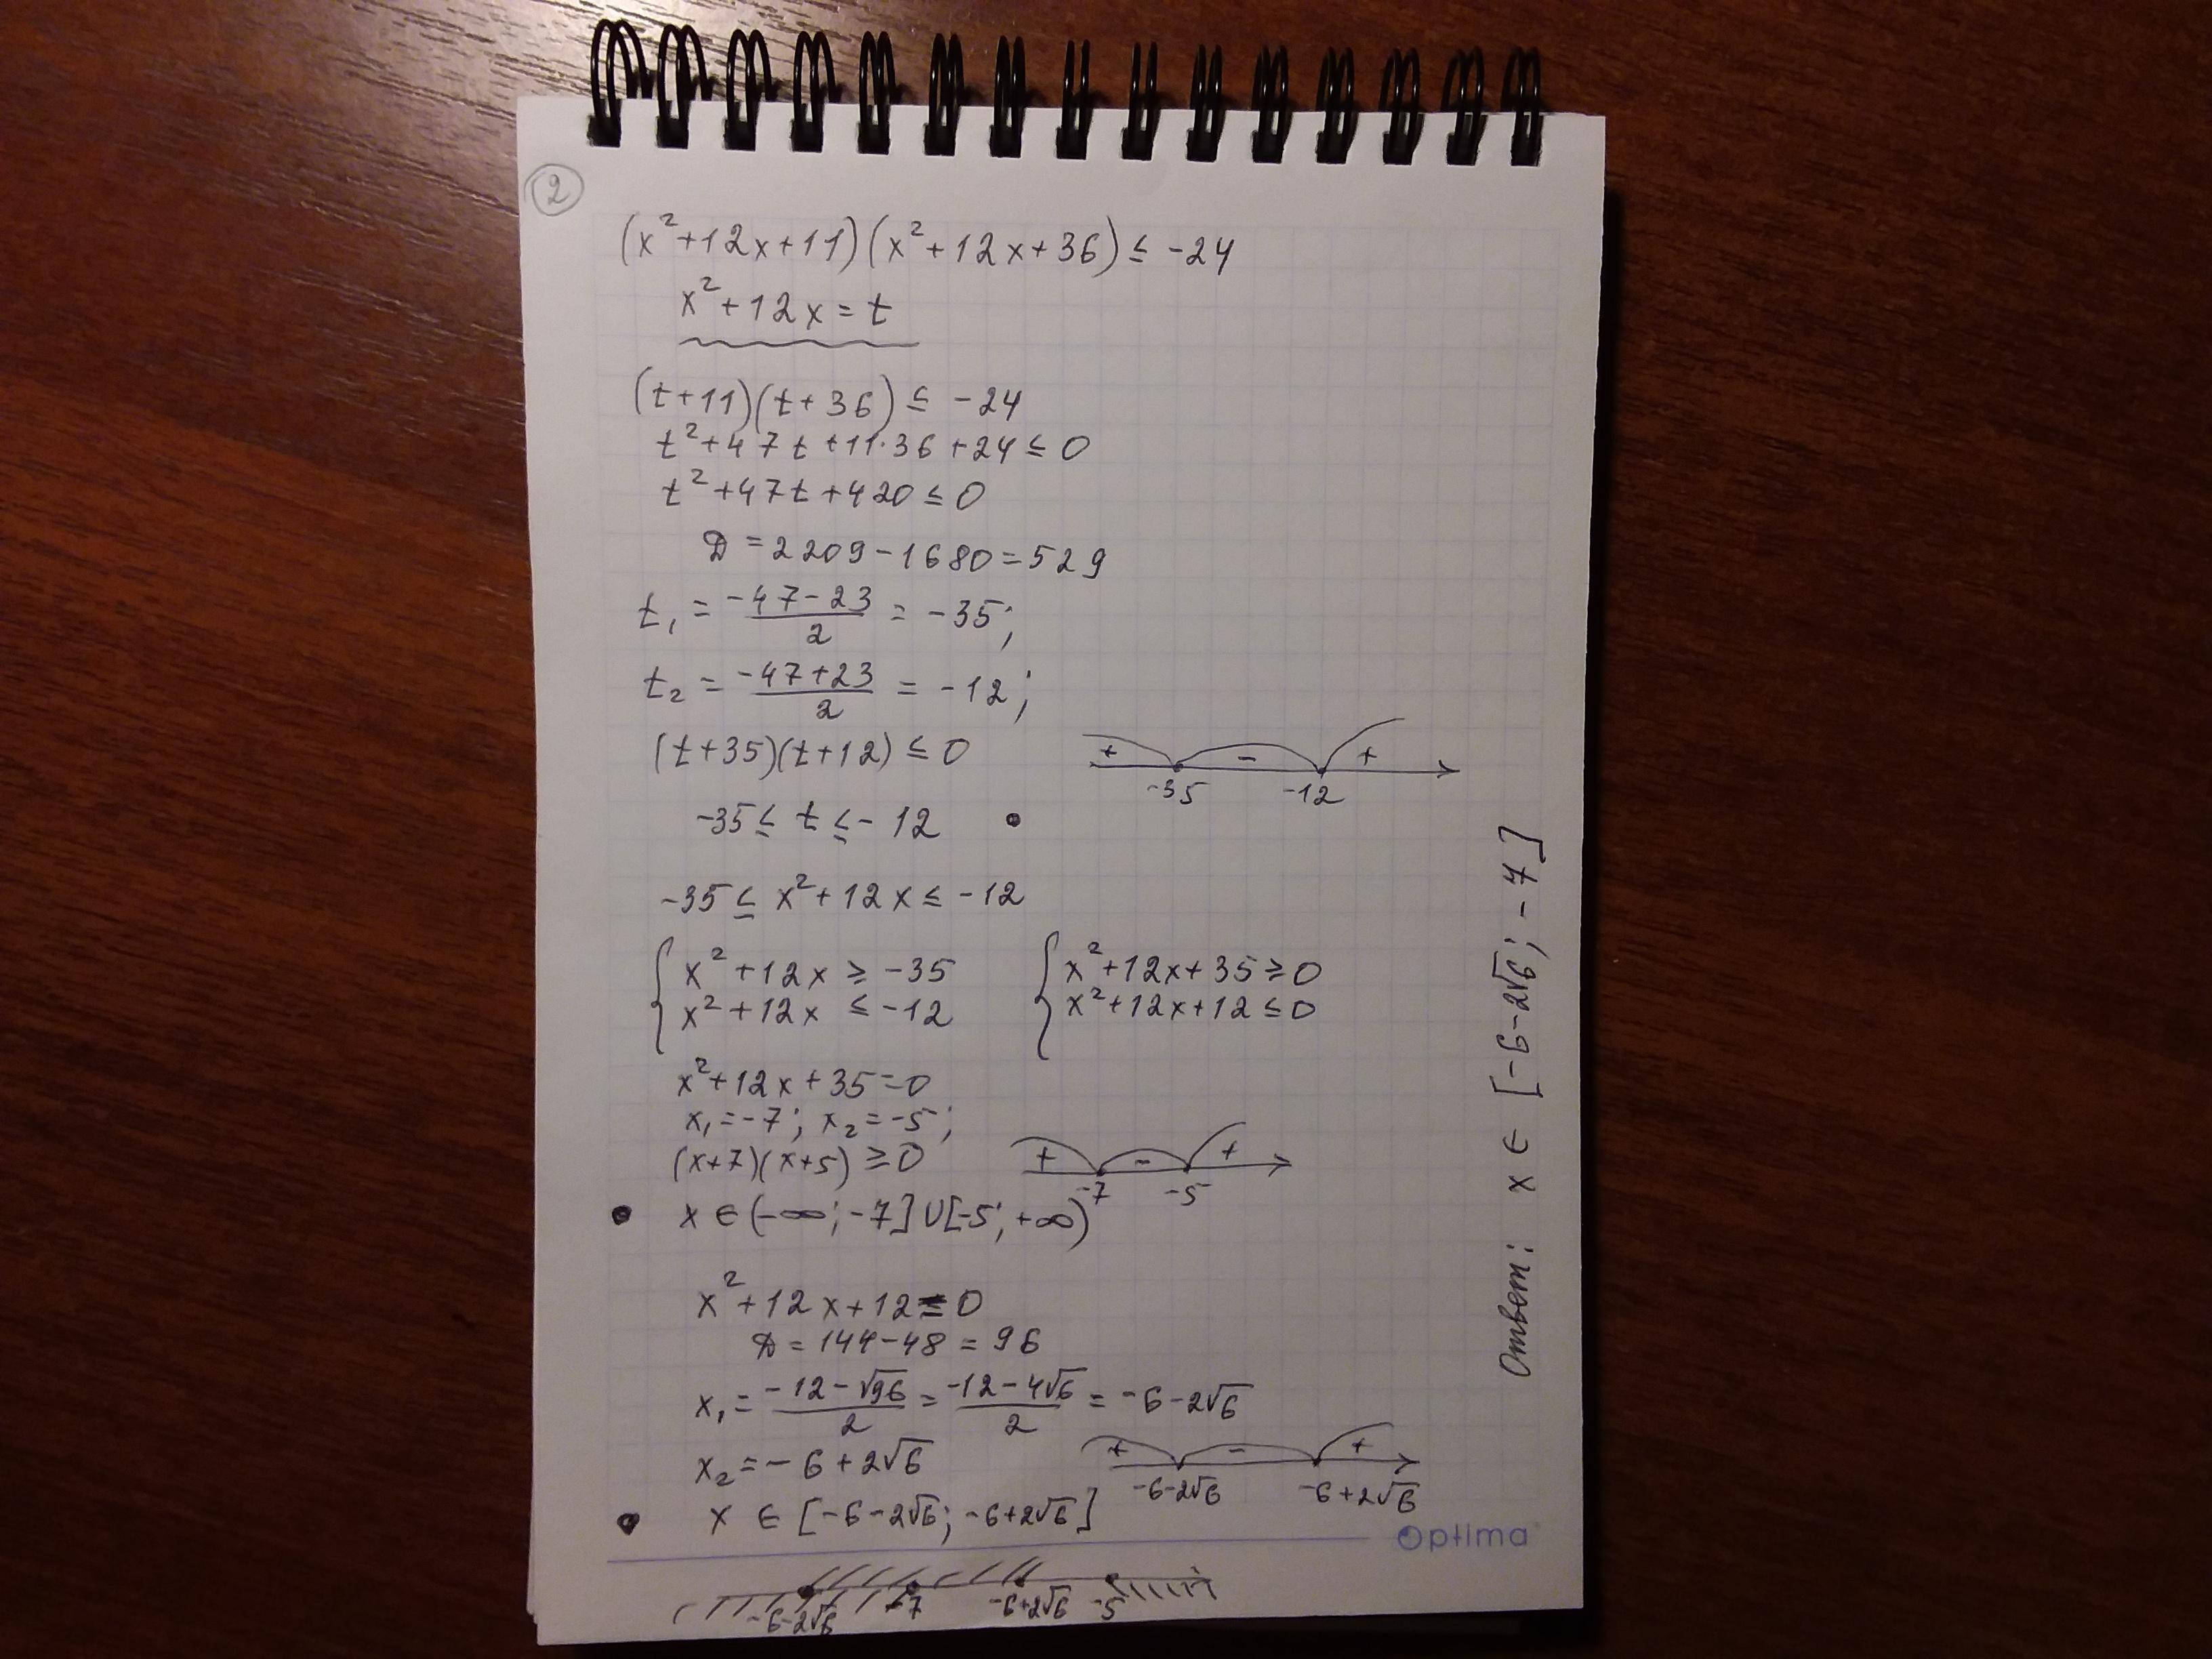 2
(x²+12x+11)(x²+12x+36) ≤ -24
x²+12x=t
(t+11)(t+36) ≤ -24
t²+47t+11·36+24≤0
t²+47t+420≤0
D=2209-1680=529
t₁ = (-47-23)/2 = -35;
t₂ = (-47+23)/2 = -12;
(t+35)(t+12) ≤ 0
+ - +
-35 -12
-35≤ t ≤ -12
-35≤ x²+12x ≤ -12
{ x²+12x ≥ -35 { x²+12x+35≥0
x²+12x ≤ -12 x²+12x+12≤0
x²+12x+35=0
x₁=-7; x₂=-5;
(x+7)(x+5) ≥0
+ - +
-7 -5
x ∈ (-∞; -7] ∪ [-5; +∞)
x²+12x+12=0
D = 144-48 = 96
x₁ = (-12-√96)/2 = (-12-4√6)/2 = -6-2√6
x₂ = -6+2√6
+ - +
-6-2√6 -6+2√6
x ∈ [-6-2√6; -6+2√6]
Optima
-6-2√6 -7 -6+2√6 -5
Ответ: x ∈ [-6-2√6; -7]